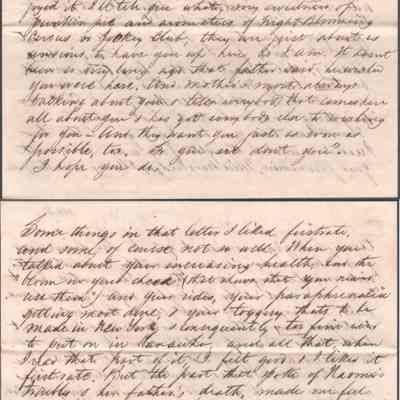 joyed it I'll tell you what, very excellence of a
pumpkin pie and aromatics of Night Blooming
Cereus or they are just about as
anxious to have you up here as I am. It hasn't
been a very long ago that father said he wished
you were here. And mother's most always
talking about you & tells everybody that comes here
all about you & has got everybody else to wishing
for you. And they want you just as soon as
possible, too. So you see don't you?
I hope you do.
Some things in that letter I liked firstrate,
and some, of course not so well. When you
talked about your increasing health, and the
bloom on your cheek (that shows that you mean
and your rides, your paraphernalia
getting most done, & your toggery that's to be
made in New York, & consequently too fine ever
to put on in and all that, when
I read that part of it I felt good & I liked it
firstrate. But the part that spoke of Naomi's
troubles & her father's death, made me feel